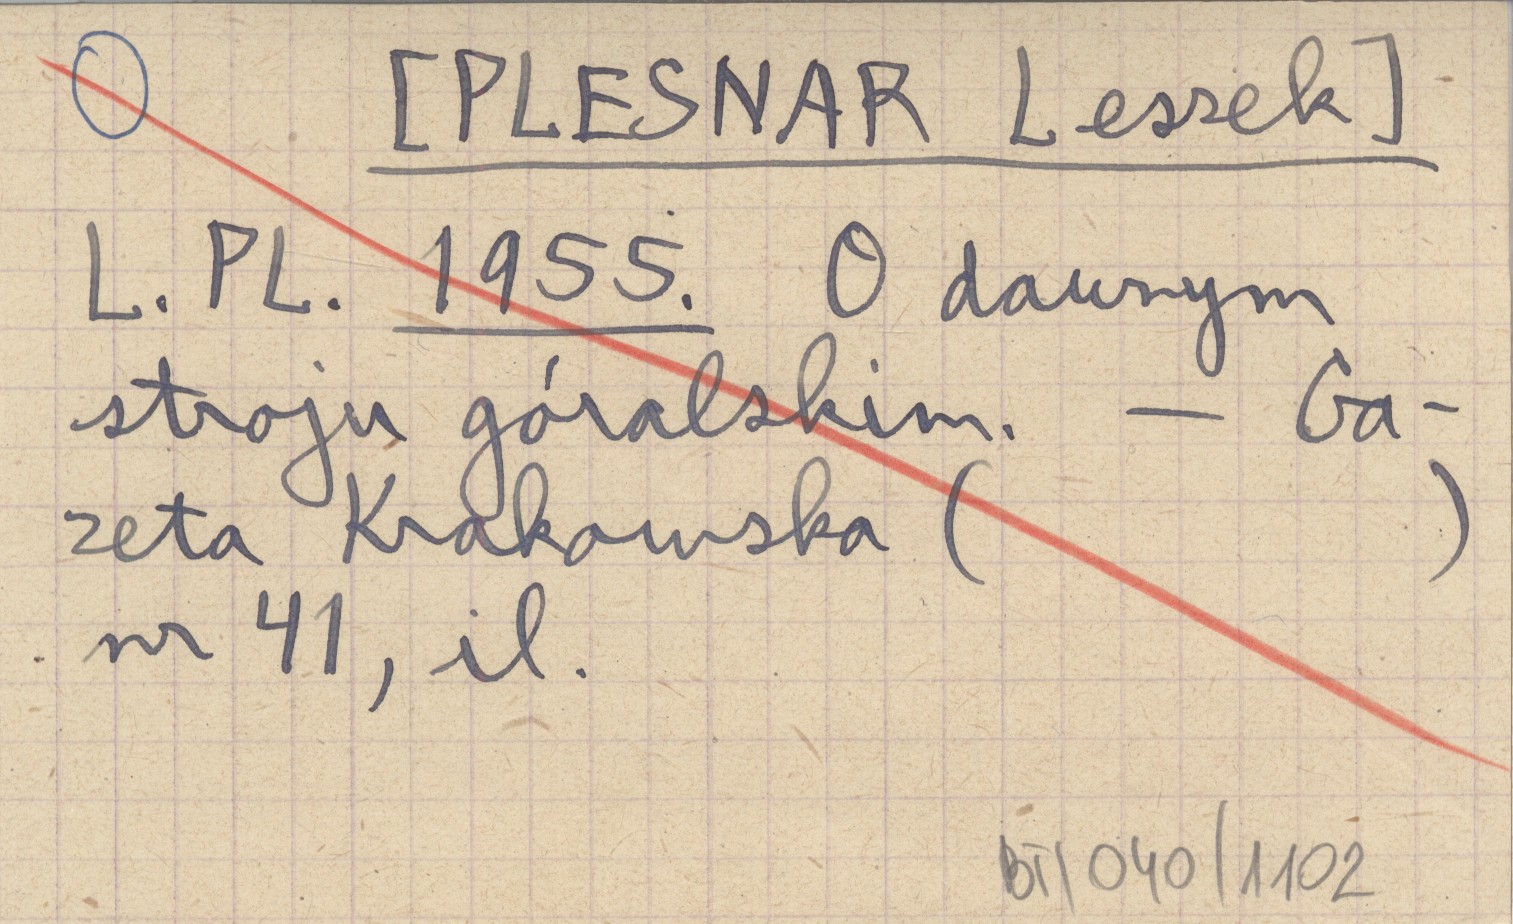 [PLESNAR Leszek]
L. PL. 1955. O dawnym
stroju góralskim. — Ga-
zeta Krakowska ( )
nr 41, il.
BT/040/1102